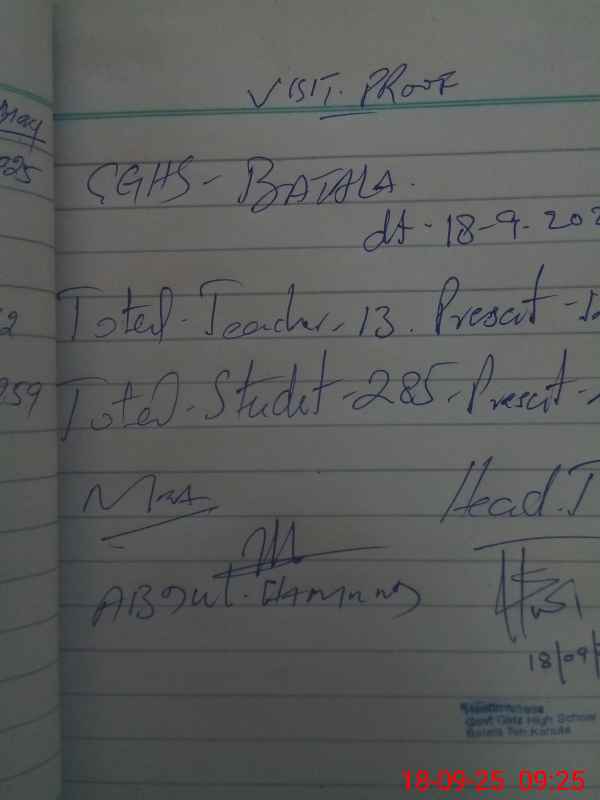 VISIT. PROOF
GGHS - BATALA.
dt. 18-9-202
Total. Teacher. 13. Present - 12
Total. Studet - 285. Present -
Head. T
18/09/
Headmistress
Govt Girls High School
Batala Teh Kahuta
18-09-25 09:25